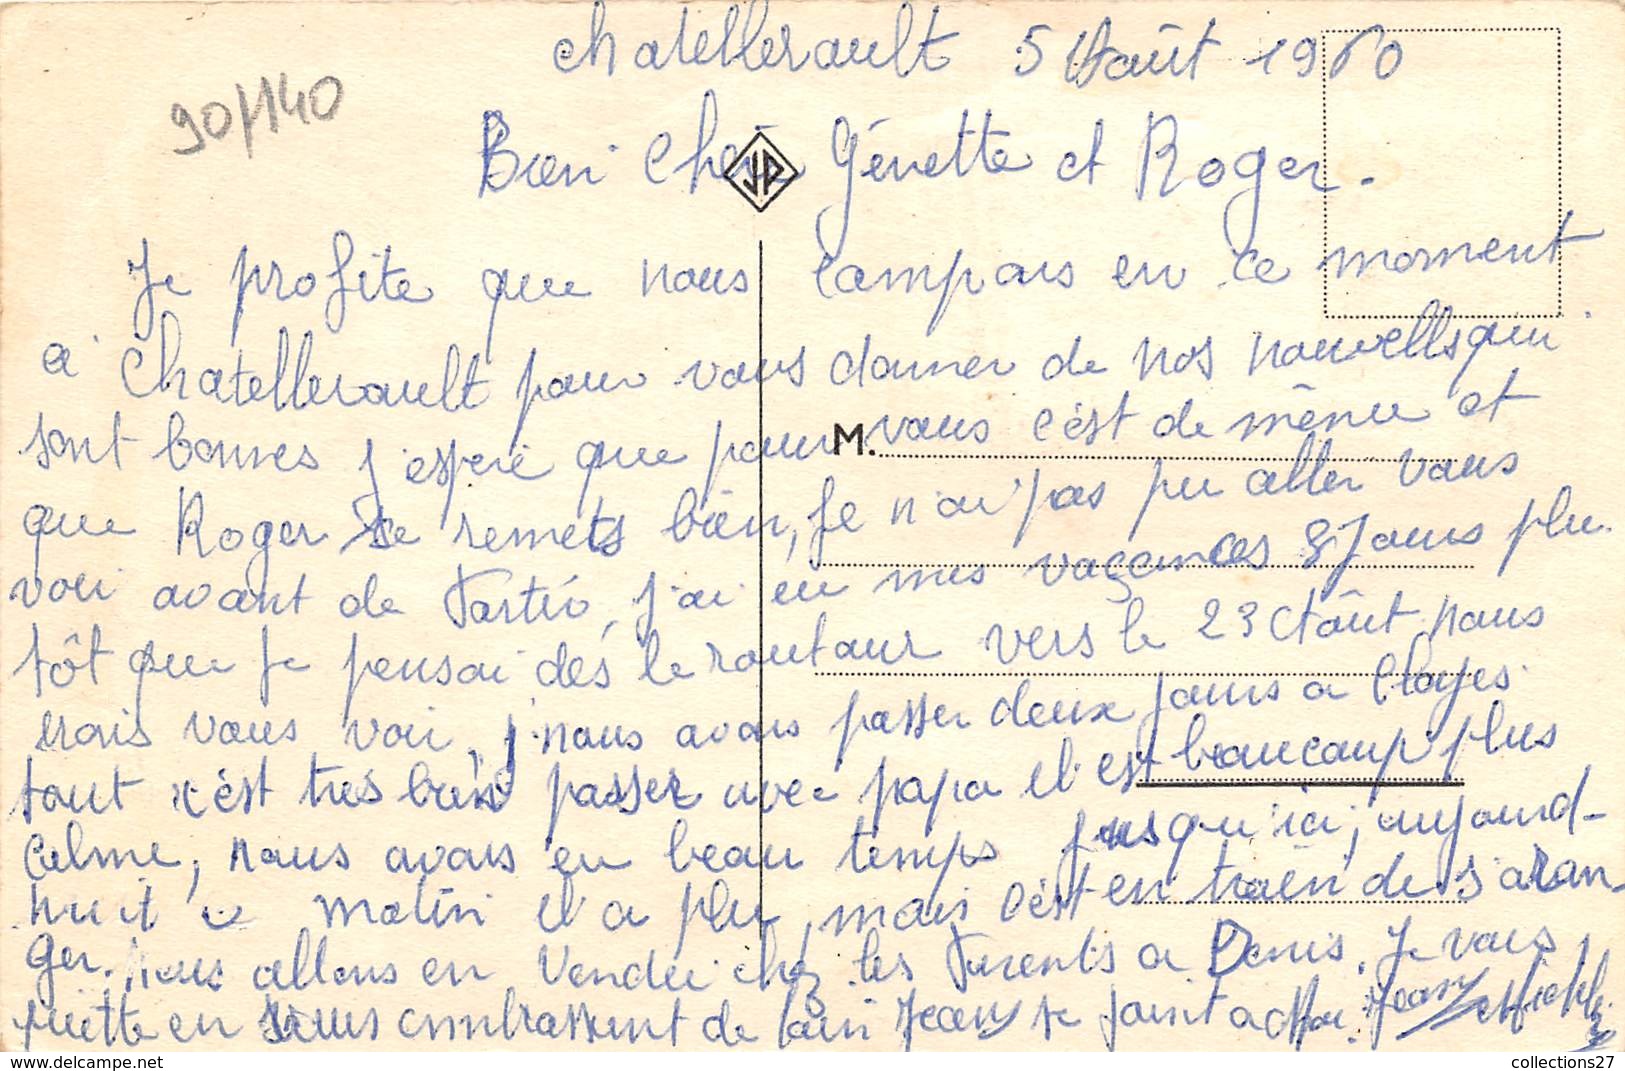 chatellerault 5 Août 1960
90/140
Bien Chère Génette et Roger.
JP
Je profite que nous campons en ce moment
a Chatellerault pour vous donner de nos nouvells qui
sont bonnes j'espere que pour M. vous c'ést de même et
que Roger se remets bien, Je n'ai pas pu aller vous
voir avant de Partir, j'ai eu mes vaçances 8 Jours plu
tôt que je pensai dés le routour vers le 23 Août nous
irais vous voir, nous avons passer deux jours a Cloyes
tout c'ést trés bien passer avec papa il est beaucoup plus
calme, nous avons eu beau temps jusqu'ici, aujourd-
huit ce matin il a plu, mais c'ést en traien de s'aran-
ger. nous allons en Vendée chez les Parents a Denis. Je vous
quitte en vous embrassent de loin Jeany se joint a moi. Jeany et Michele
collections27